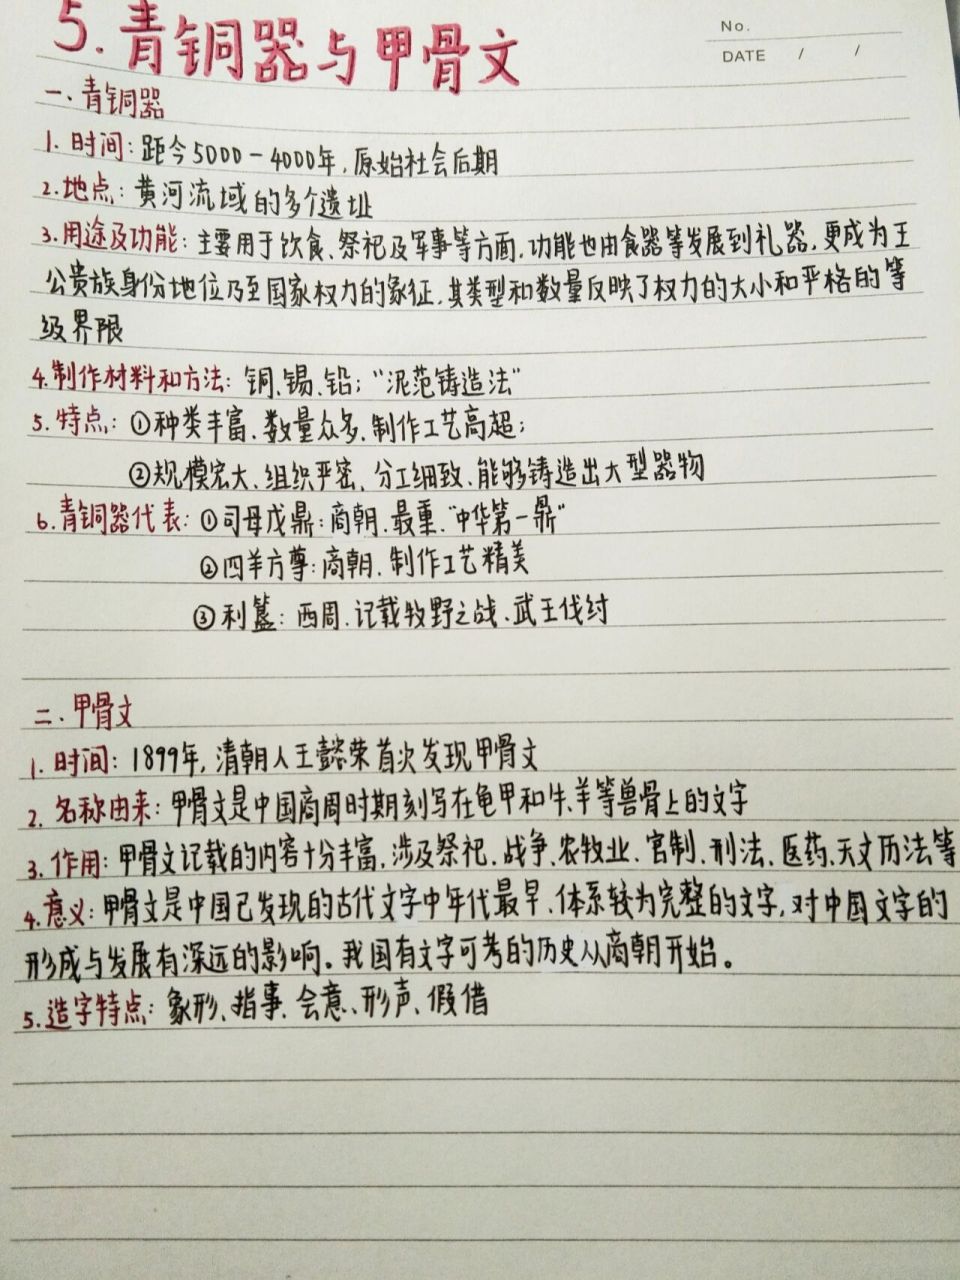 5.青铜器与甲骨文
No.
DATE / /
一、青铜器
1. 时间：距今5000-4000年，原始社会后期
2.地点：黄河流域的多个遗址
3.用途及功能：主要用于饮食、祭祀及军事等方面，功能也由食器等发展到礼器，更成为王
公贵族身份地位乃至国家权力的象征，其类型和数量反映了权力的大小和严格的等
级界限
4.制作材料和方法：铜、锡、铅；“泥范铸造法”
5.特点：①种类丰富、数量众多、制作工艺高超；
②规模宏大、组织严密、分工细致、能够铸造出大型器物
6.青铜器代表：①司母戊鼎：商朝、最重、“中华第一鼎”
②四羊方尊：商朝、制作工艺精美
③利簋：西周、记载牧野之战、武王伐纣
二、甲骨文
1. 时间：1899年，清朝人王懿荣首次发现甲骨文
2. 名称由来：甲骨文是中国商周时期刻写在龟甲和牛、羊等兽骨上的文字
3. 作用：甲骨文记载的内容十分丰富，涉及祭祀、战争、农牧业、官制、刑法、医药、天文历法等
4.意义：甲骨文是中国已发现的古代文字中年代最早、体系较为完整的文字，对中国文字的
形成与发展有深远的影响。我国有文字可考的历史从商朝开始。
5.造字特点：象形、指事、会意、形声、假借